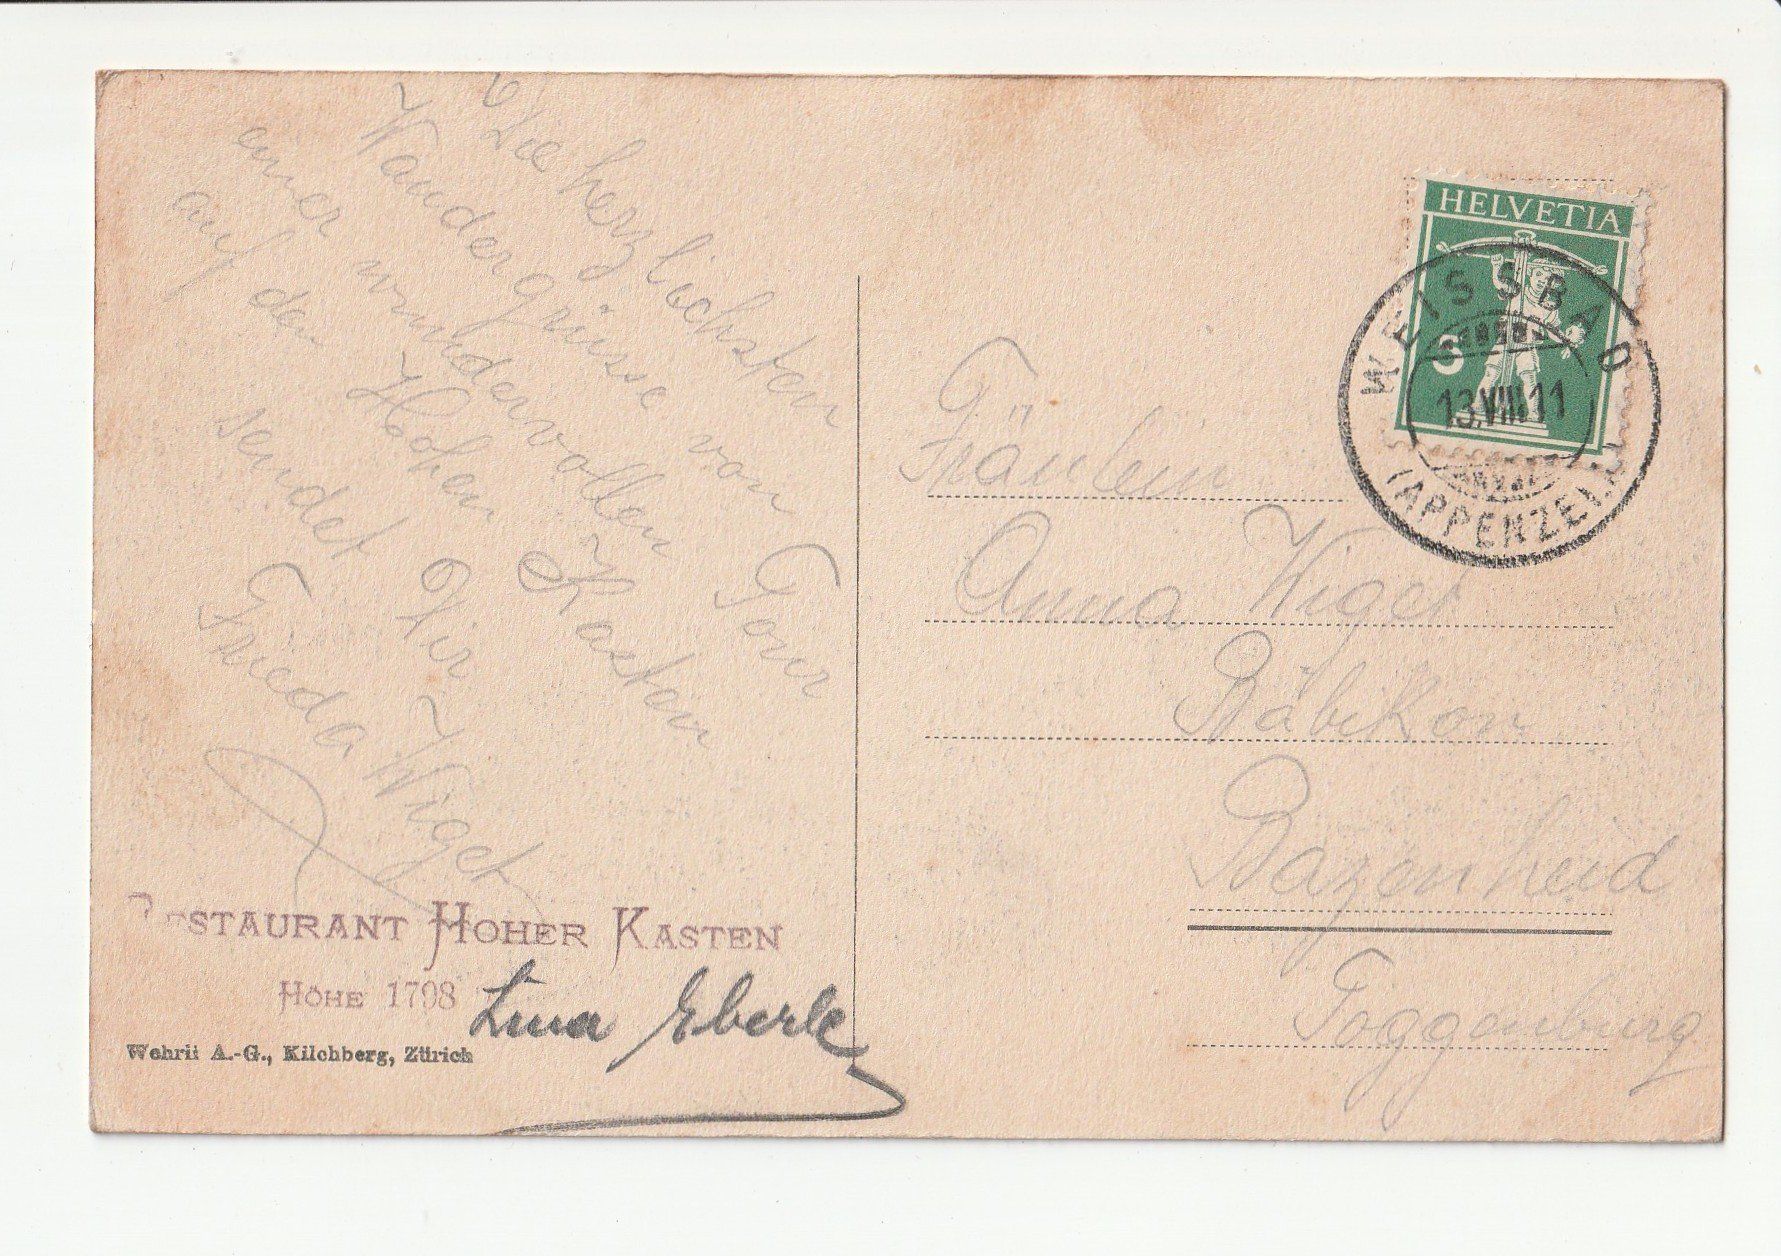 Die herzlichsten
Wandergrüsse von
einer wundervollen Tour
auf den Hohen Kasten
sendet Dir
Frieda Wiget
RESTAURANT HOHER KASTEN
HÖHE 1798
Lina Eberle
Wehrli A.-G., Kilchberg, Zürich
HELVETIA
5
WEISSBAD
13.VIII.11
(APPENZELL)
Fräulein
Anna Wiget
Räbikon
Bazenheid
Toggenburg